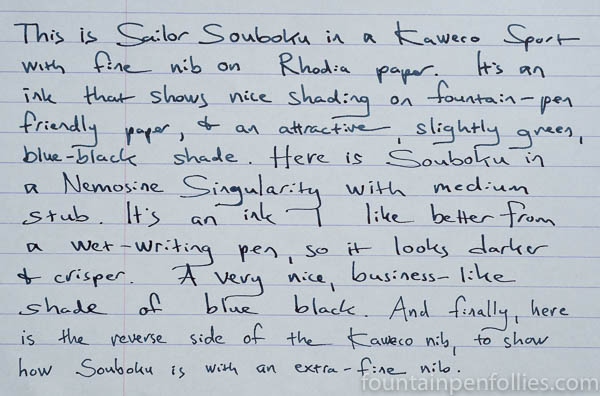 This is Sailor Souboku in a Kaweco Sport
with fine nib on Rhodia paper. It's an
ink that shows nice shading on fountain-pen
friendly paper, & an attractive, slightly green,
blue-black shade. Here is Souboku in
a Nemosine Singularity with medium
stub. It's an ink I like better from
a wet-writing pen, so it looks darker
& crisper. A very nice, business-like
shade of blue black. And finally, here
is the reverse side of the Kaweco nib, to show
how Souboku is with an extra-fine nib.
fountainpenfollies.com